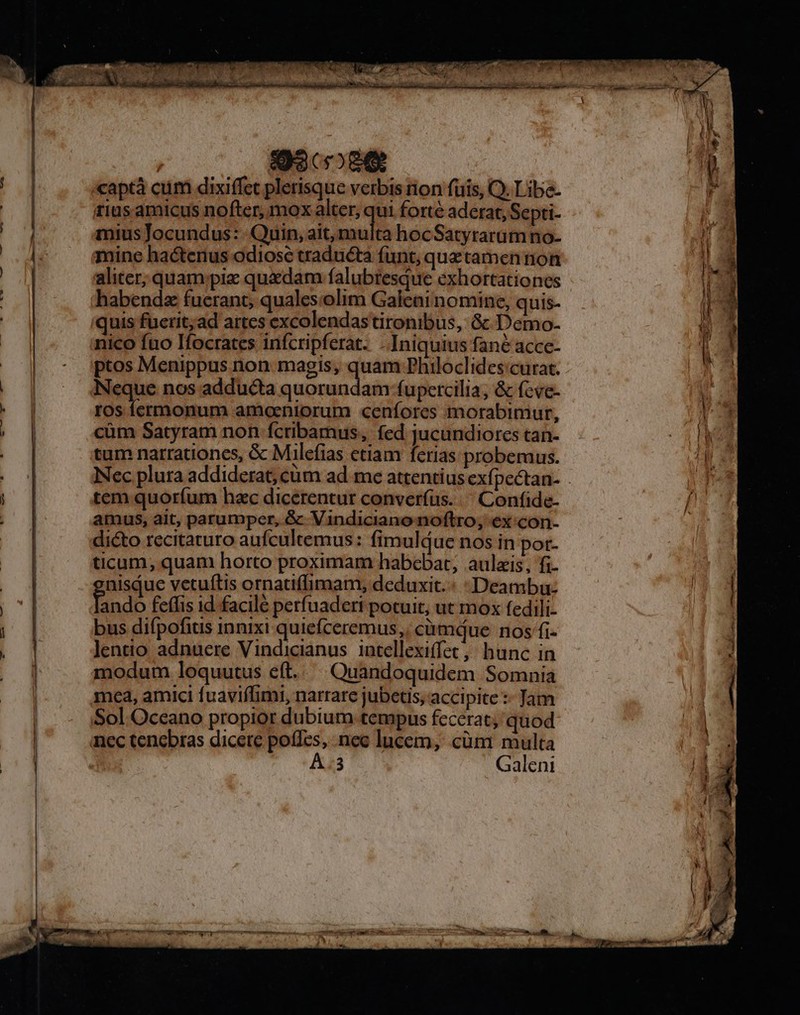 captâ cùm dixiſſet plerisque verbis non ſuis, Q. Libe-
rius amicus noſter, mox alter, qui fortè aderat, Septi-
mius Jocundus: Quin, ait, multa hoc Satyrarum no-
mine hactenus odiosè traducta ſunt, quæ tamen non
aliter, quam piæ quædam ſalubresque exhortationes
habendæ fuerant, quales olim Galeni nomine, quis-
quis fuerit, ad artes excolendas tironibus, & Demo-
nico ſuo Iſocrates inſcripſerat. Iniquius ſanè acce-
ptos Menippus non magis, quam Philoclides curat.
Neque nos adducta quorundam ſupercilia, & ſeve-
ros ſermonum amœniorum cenſores morabimur,
cùm Satyram non ſcribamus, ſed jucundiores tan-
tum narrationes, & Mileſias etiam ferias probemus.
Nec plura addiderat, cùm ad me attentius exſpectan-
tem quorſum hæc dicerentur converſus. Confide-
amus, ait, parumper, & Vindiciano noſtro, ex con-
dicto recitaturo auſcultemus: ſimulque nos in por-
ticum, quam horto proximam habebat, aulæis, ſi-
gnisque vetuſtis ornatiſſimam, deduxit. Deambu-
lando feſſis id facilè perſuaderi potuit, ut mox ſedili-
bus diſpoſitis innixi quieſceremus, cùmque nos ſi-
lentio adnuere Vindicianus intellexiſſet, hunc in
modum loquutus eſt. Quandoquidem Somnia
mea, amici ſuaviſſimi, narrare jubetis, accipite: Jam
Sol Oceano propior dubium tempus fecerat, quod
nec tenebras dicere poſſes, nec lucem, cùm multa
A 3 Galeni